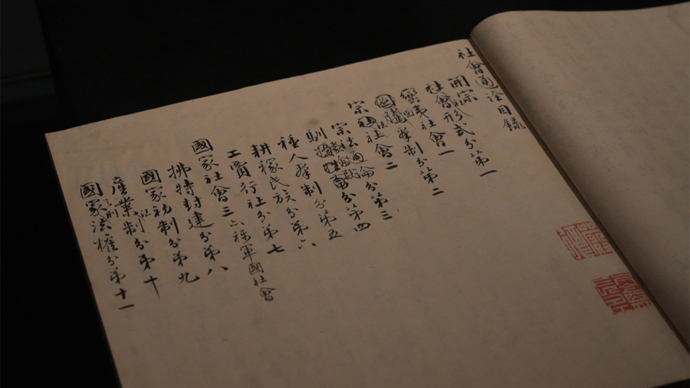 社會通詮目錄
開宗
社會形式分第一
蠻夷社會一
圖騰羣制分第二
宗法社會二
宗法通論分第三
馴擾禽獸分第四
種人羣制分第五
耕稼民族分第六
工賈行社分第七
國家社會三 亦稱軍國社會
拂特封建分第八
國家初制分第九
產業法制分第十
國家法權分第十一